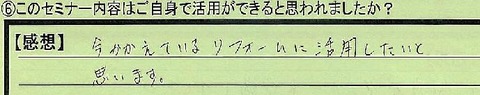 ⑥このセミナー内容はご自身で活用ができると思われましたか?
【感想】 今かかえているリフォームに活用したいと
思います。